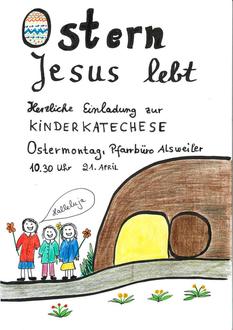 Ostern
Jesus lebt
Herzliche Einladung zur
KINDERKATECHESE
Ostermontag, Pfarrbüro Alsweiler
10.30 Uhr 21. APRIL
Halleluja